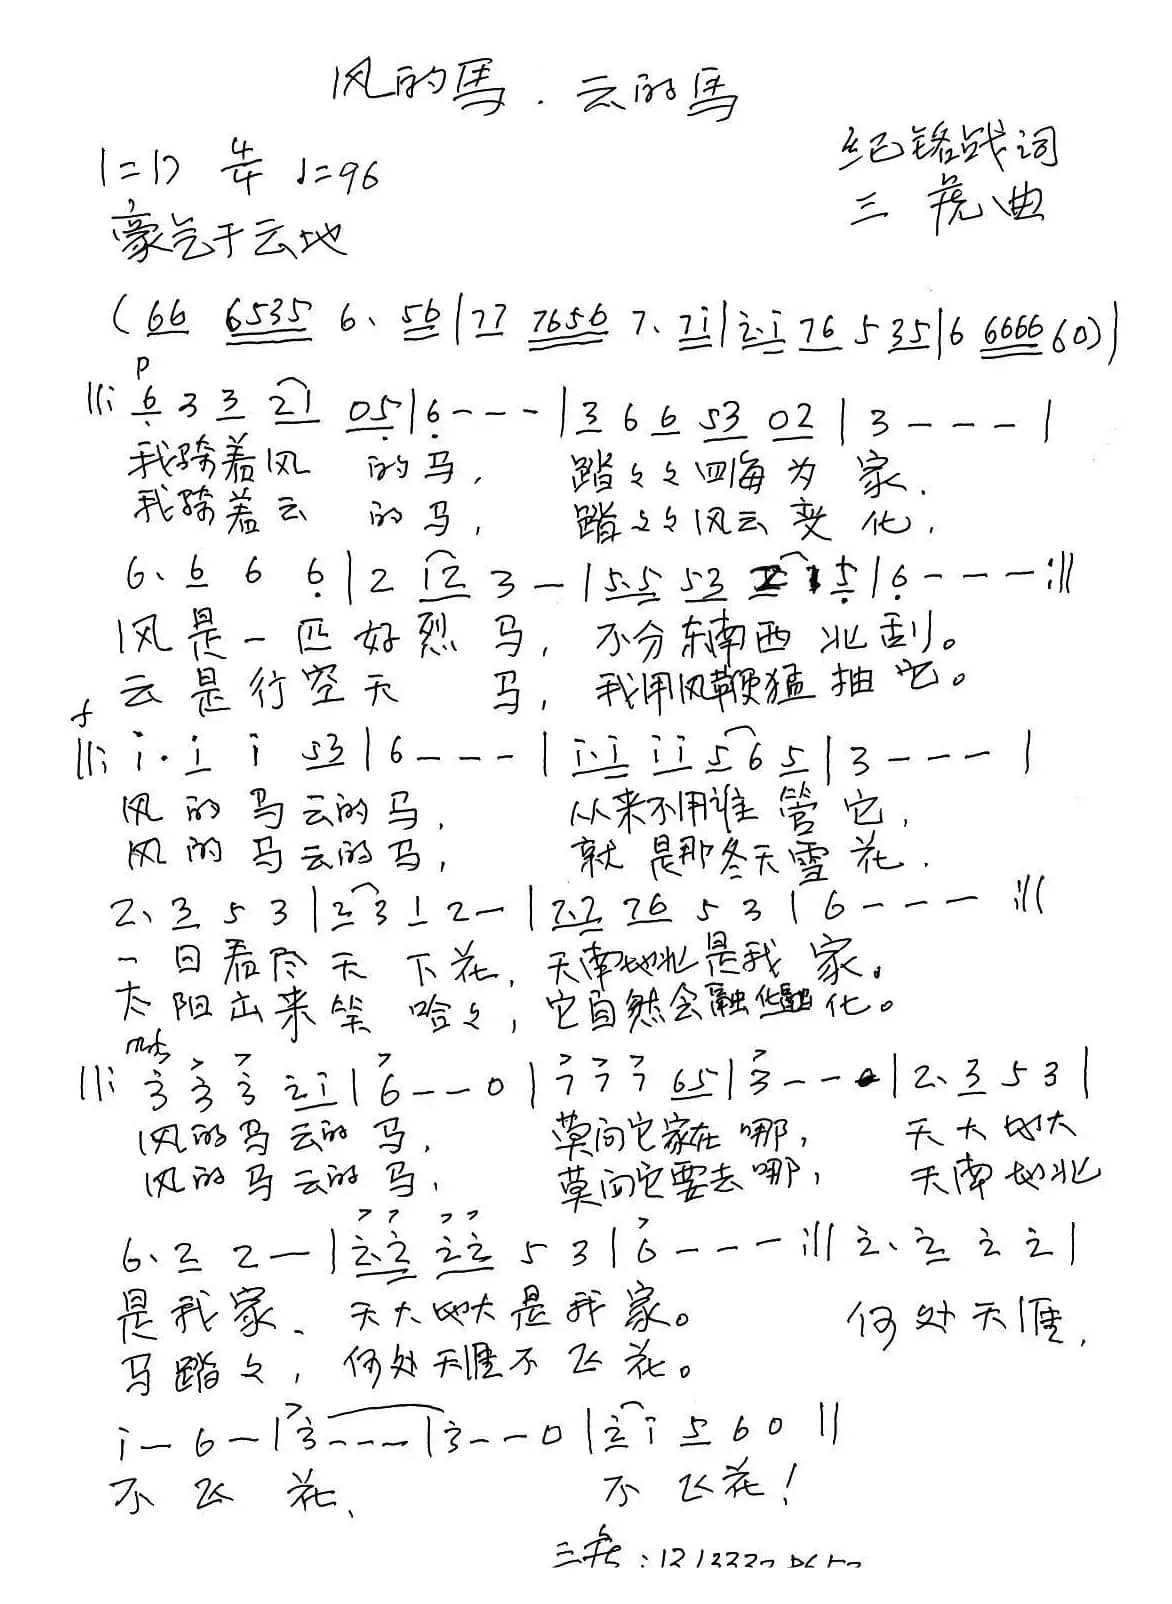 风的馬.云的馬
纪铭战词
1=D 4/4 ♩=96
三虎曲
豪气于云地
(66 6535 6. 56|77 7656 7. 7i|2.i 76 5 35|6 6666 60)|
p
||: 6 3 3 21 05|6---|3 6 6 53 02|3---|
我骑着风 的马, 踏々々四海为家.
我骑着云 的马, 踏々々风云变化,
6. 6 6 6|2 12 3-|5.5 53 2 1 5|6---:||
风是一匹好烈马, 不分东南西北刮。
云是行空天 马, 我用风鞭猛抽它。
f
||: i. i i 53|6---|i.i ii 5 6 5|3---|
风的马云的马, 从来不用谁管它,
风的马云的马, 就是那冬天雪花.
2. 3 5 3|2 3 1 2-|2.2 76 5 3|6---:||
一日看尽天下花, 天南地北是我家。
太阳出来笑哈々, 它自然会融化融化。
||: 3 3 3 2i|6--0|7 7 7 65|3--0|2. 3 5 3|
风的马云的马, 莫问它家在哪, 天大地大
风的马云的马, 莫问它要去哪, 天南地北
6. 2 2-|2.2 22 5 3|6---:|| 2. 2 2 2|
是我家、天大地大是我家。 何处天涯,
马踏々, 何处天涯不飞花。
i-6-|3---|3--0|2 i 5 6 0||
不飞花、 不飞花!